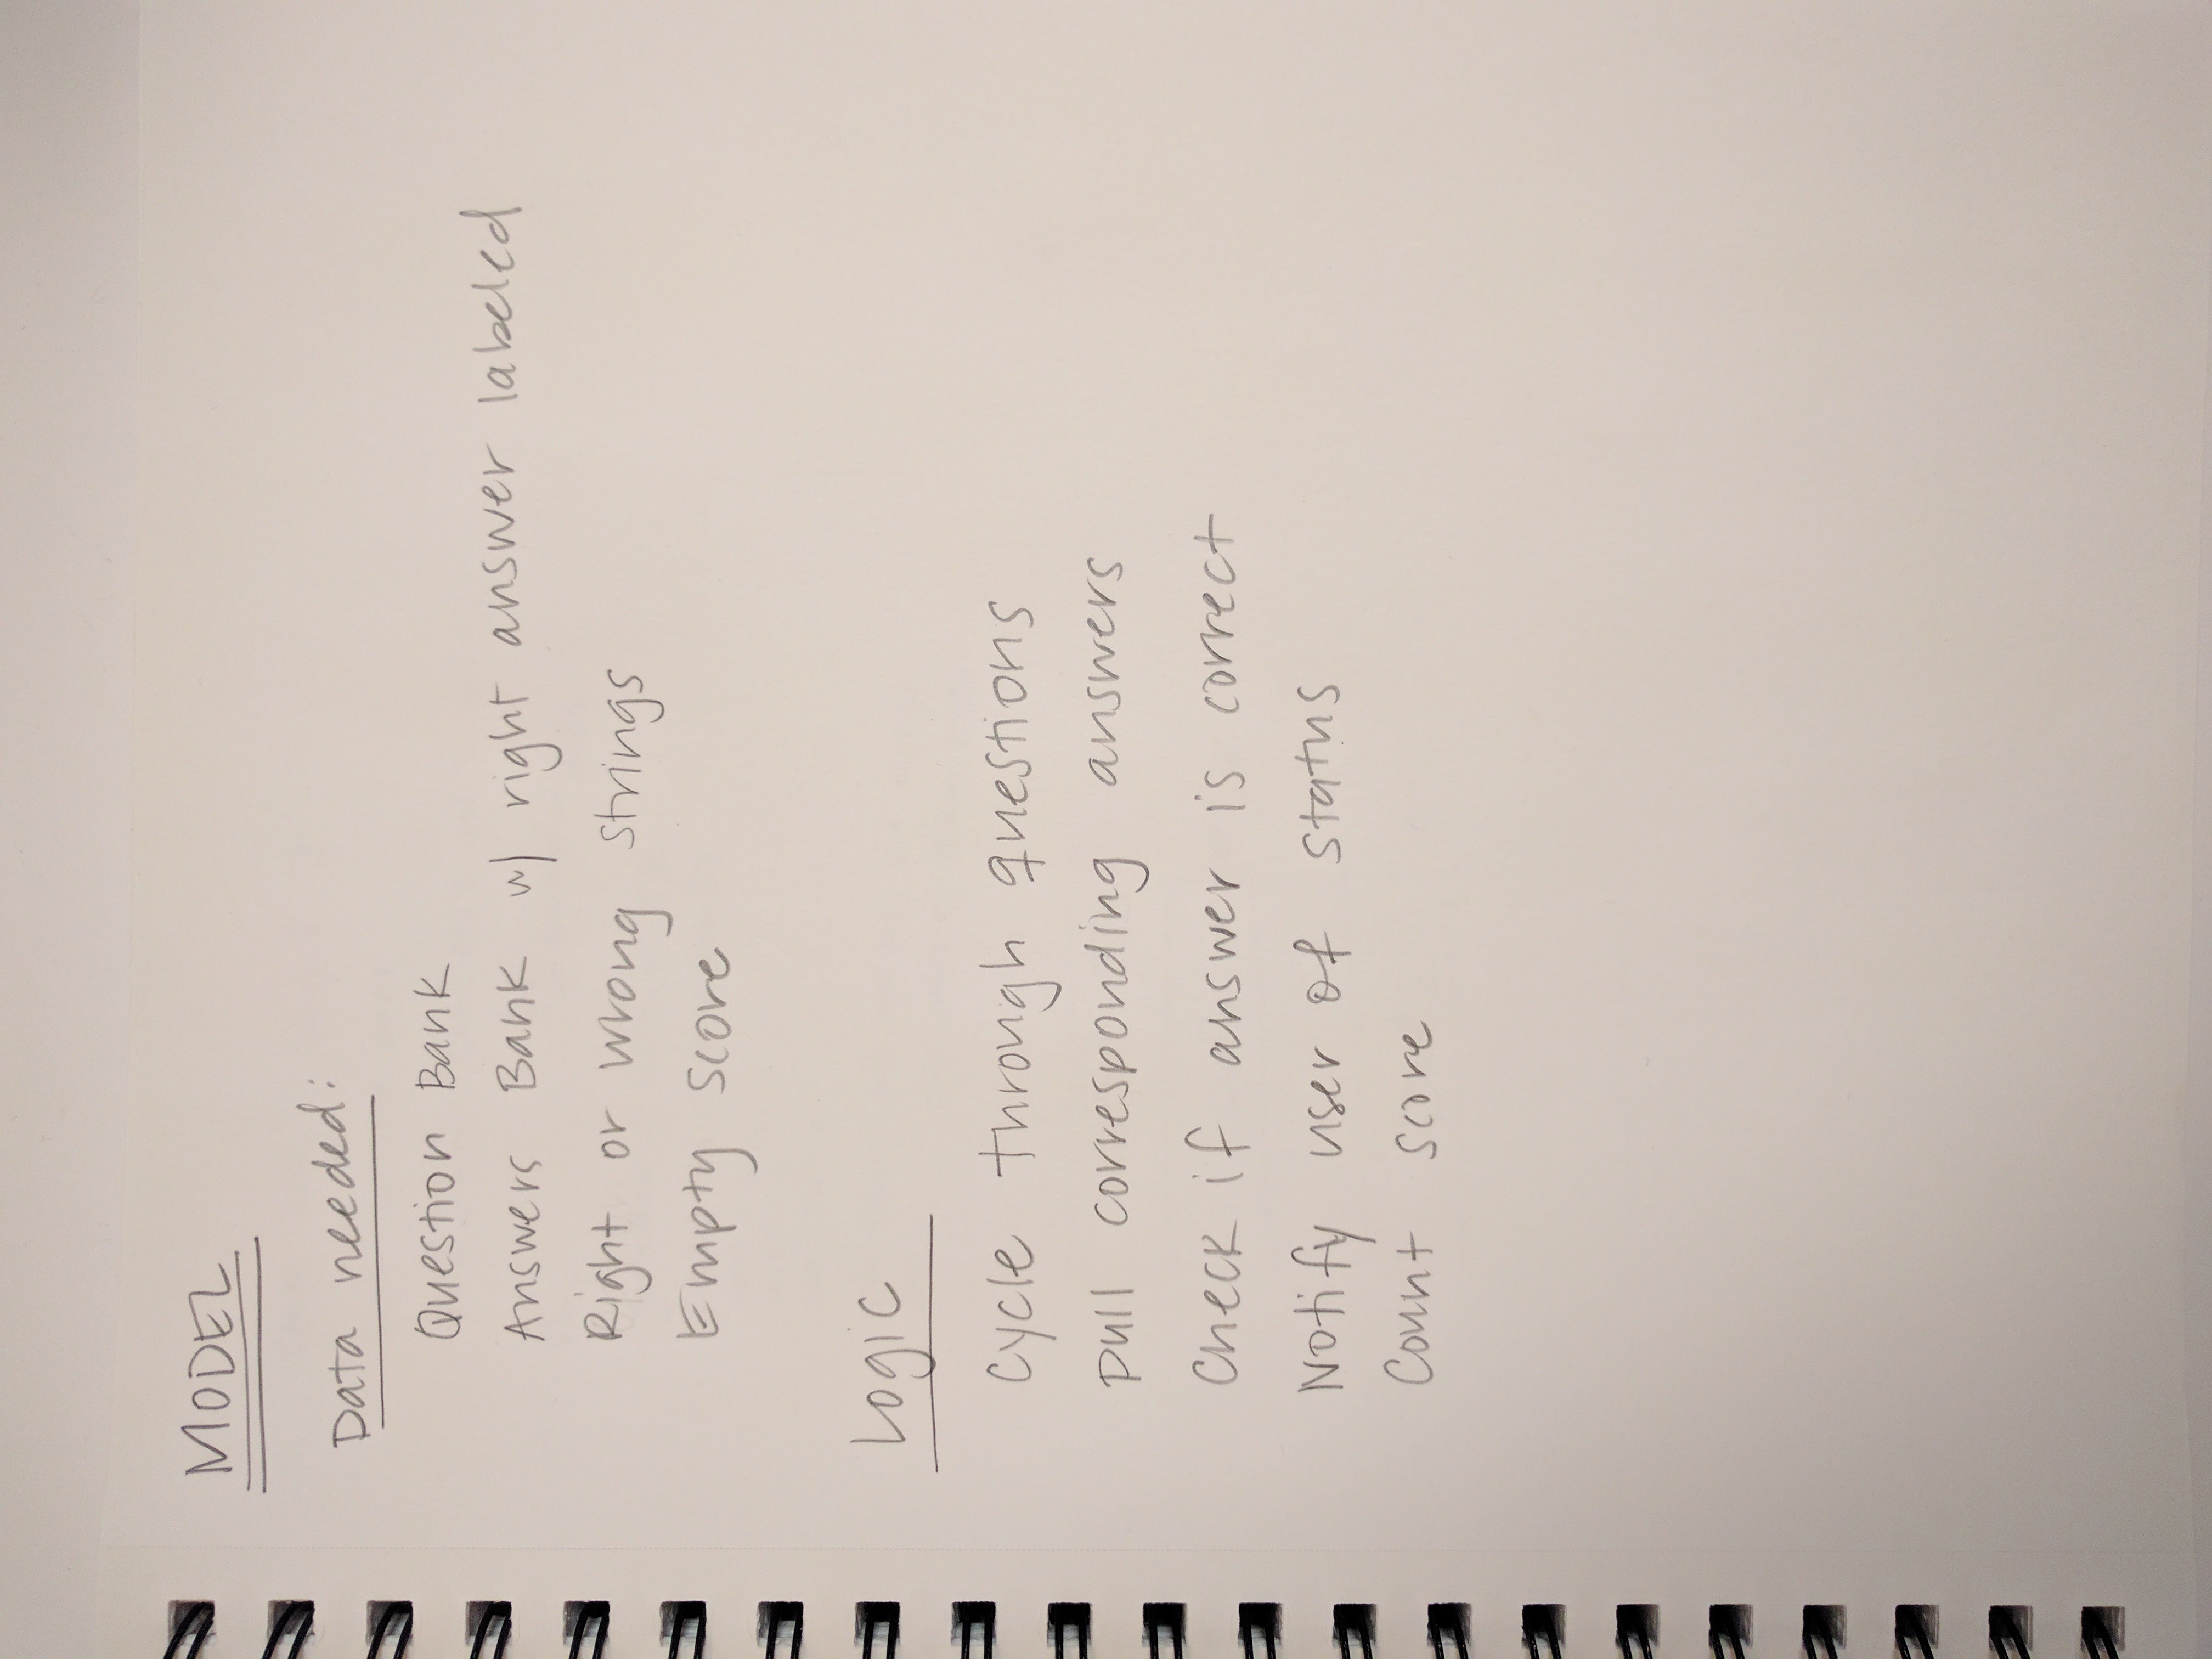 MODEL
Data needed:
Question Bank
Answers Bank w/ right answer labeled
Right or wrong strings
Empty score
Logic
Cycle through questions
pull corresponding answers
Check if answer is correct
Notify user of status
Count score